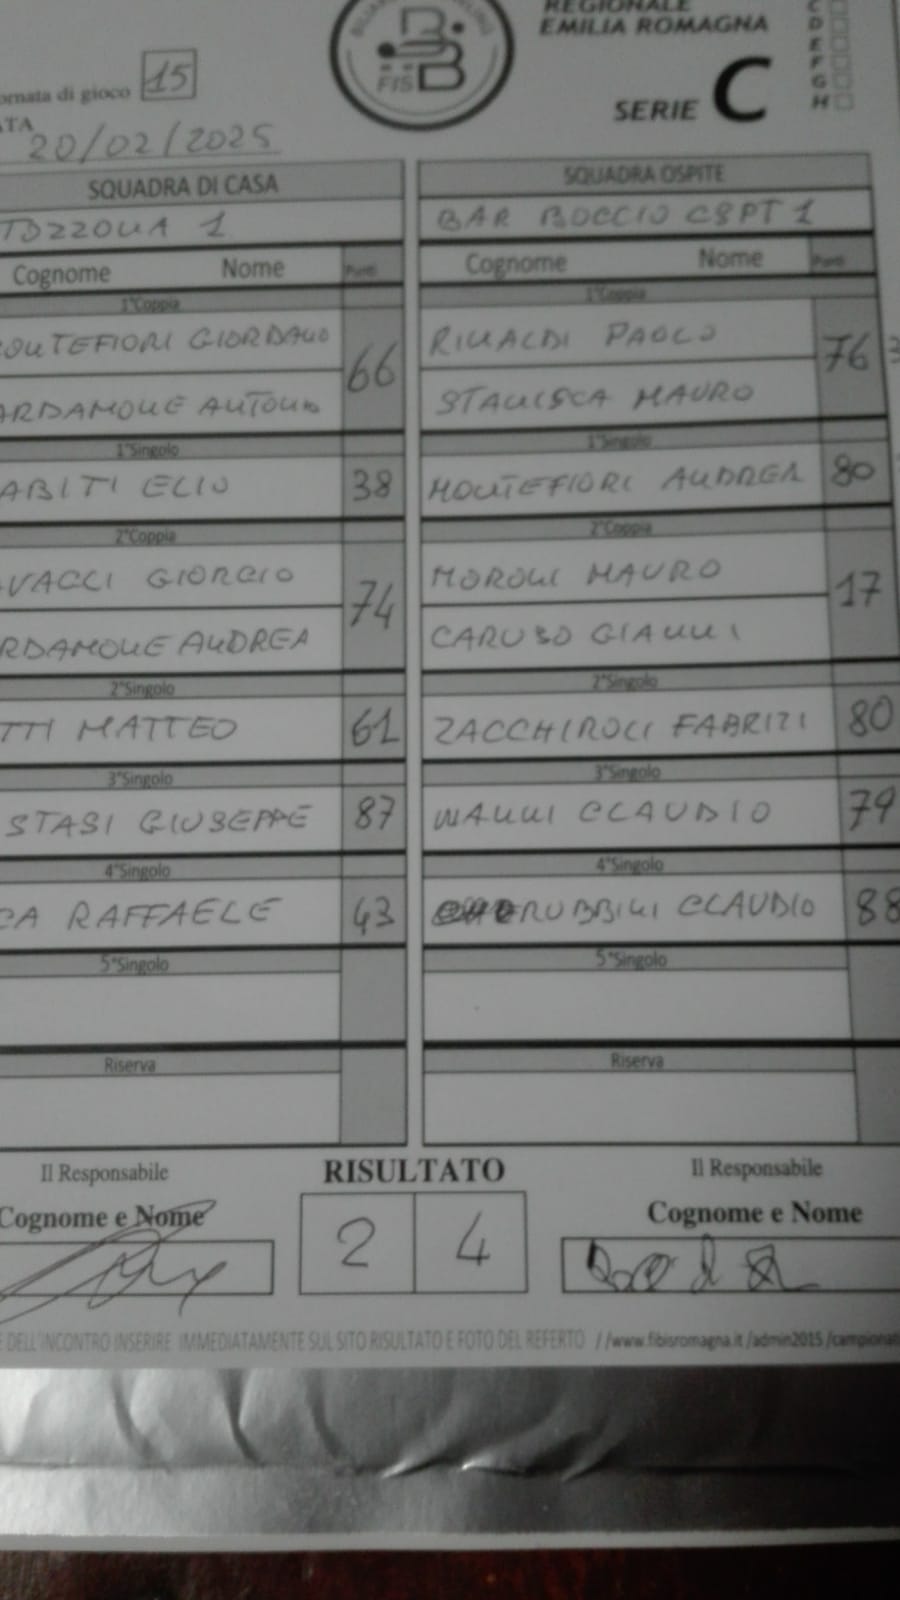 REGIONALE
EMILIA ROMAGNA
SERIE C
C
D
E
F
G
H
FIS
ornata di gioco 15
ATA
20/02/2025
SQUADRA DI CASA
SQUADRA OSPITE
TOZZONA 1
BAR BOCCIO CSPT 1
Cognome Nome Punti
Cognome Nome Punti
1°Coppia
1°Coppia
ONTEFIORI GIORDANO 66
RINALDI PAOLO 76
ARDAMONE ANTONIO
STANISCA MAURO
1°Singolo
1°Singolo
ABITI ELIO 38
MONTEFIORI ANDREA 80
2°Coppia
2°Coppia
VACCI GIORGIO 74
MORONI MAURO 17
RDAMONE ANDREA
CARUSO GIANNI
2°Singolo
2°Singolo
TTI MATTEO 61
ZACCHIROLI FABRIZI 80
3°Singolo
3°Singolo
STASI GIUSEPPE 87
NANNI CLAUDIO 79
4°Singolo
4°Singolo
CA RAFFAELE 43
RUBBINI CLAUDIO 88
5°Singolo
5°Singolo
Riserva
Riserva
Il Responsabile
RISULTATO
Il Responsabile
Cognome e Nome
2 4
Cognome e Nome
E DELL'INCONTRO INSERIRE IMMEDIATAMENTE SUL SITO RISULTATO E FOTO DEL REFERTO //www.fibisromagna.it/admin2015/campionat